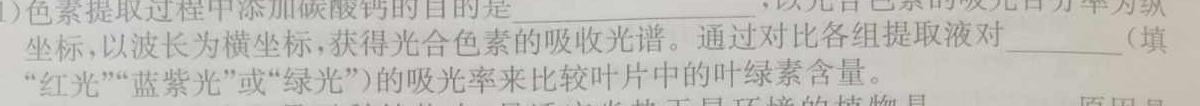 1)色素提取过程中添加碳酸钙的目的是____________,以光合色素的吸光百分率为纵
坐标,以波长为横坐标,获得光合色素的吸收光谱。通过对比各组提取液对________(填
“红光”“蓝紫光”或“绿光”)的吸光率来比较叶片中的叶绿素含量。
环境的植物是________原因是